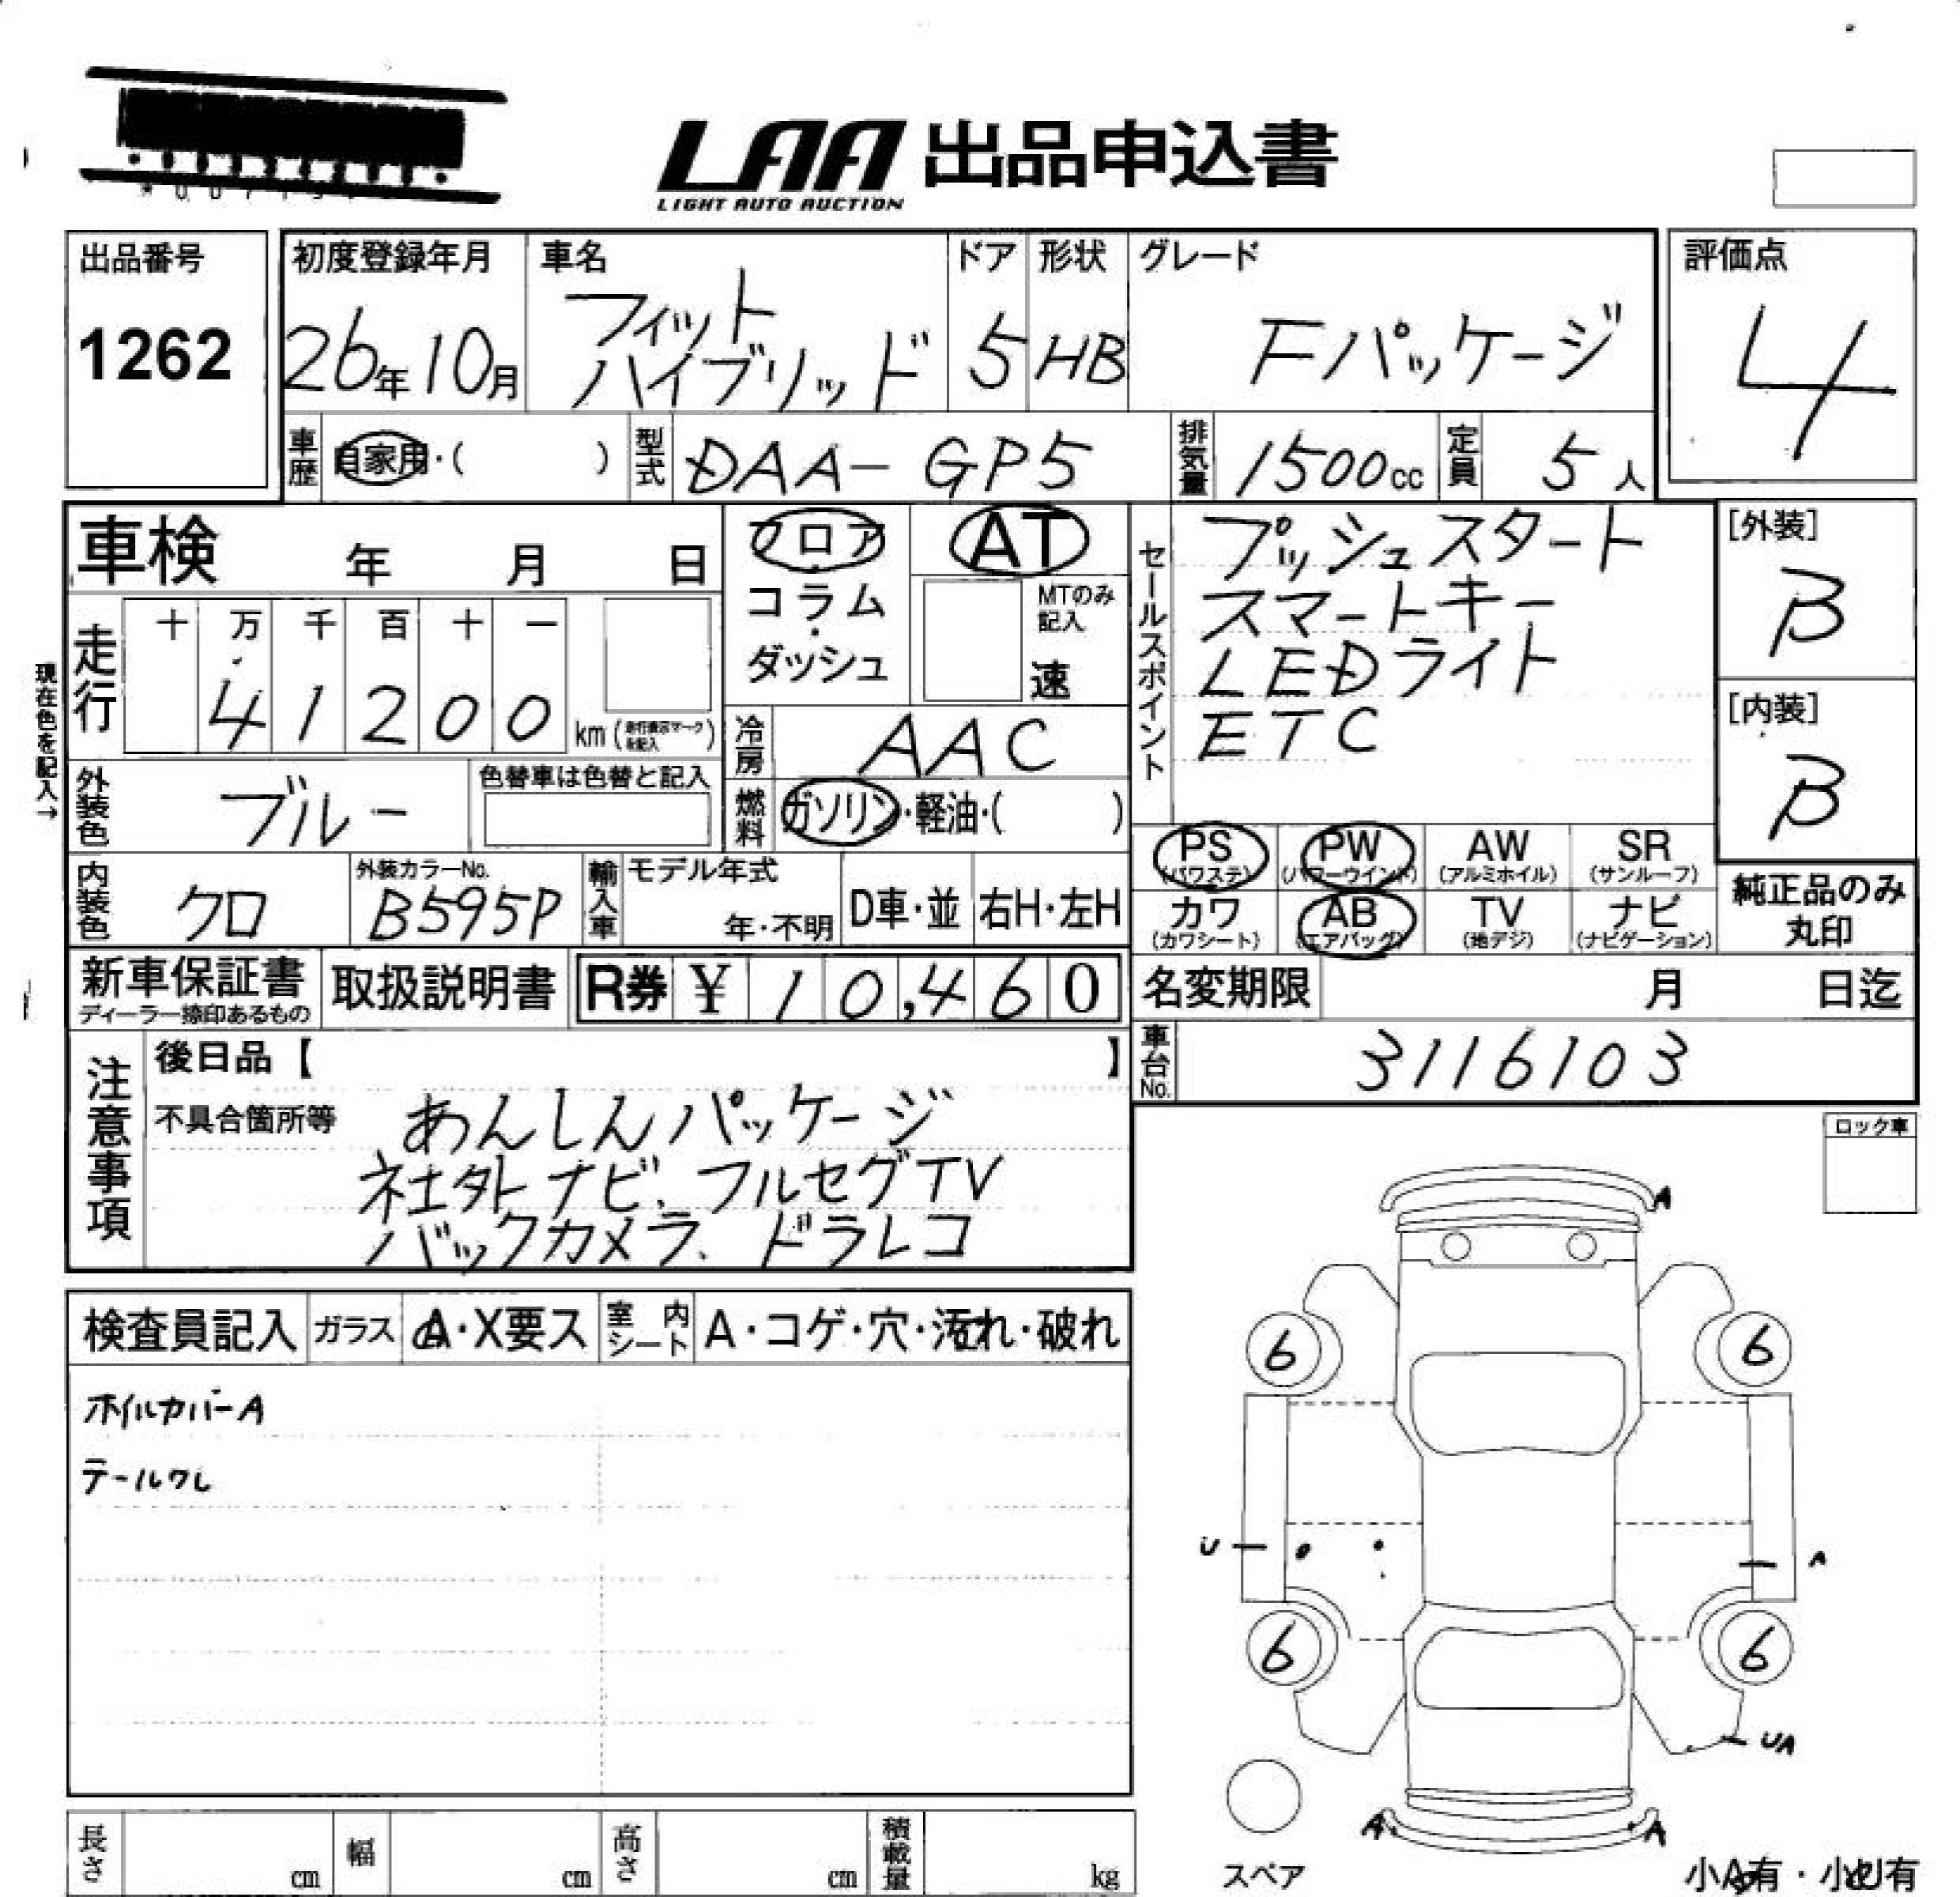 LAA 出品申込書
LIGHT AUTO AUCTION
出品番号
1262
初度登録年月
26年10月
車名
フィット
ハイブリッド
ドア
5
形状
HB
グレード
Fパッケージ
評価点
4
車歴
自家用・( )
型式
DAA-GP5
排気量
1500cc
定員
5人
車検 年 月 日
フロア
・
コラム
・
ダッシュ
AT
MTのみ
記入
速
セールスポイント
プッシュスタート
スマートキー
LEDライト
ETC
[外装]
B
[内装]
B
現在色を記入→
走行
十 万 千 百 十 一
4 1 2 0 0
km(走行表示マークを記入)
冷房
AAC
外装色
ブルー
色替車は色替と記入
燃料
ガソリン・軽油・( )
PS
(パワステ)
PW
(パワーウインド)
AW
(アルミホイル)
SR
(サンルーフ)
内装色
クロ
外装カラーNo.
B595P
輸入車
モデル年式
年・不明
D車・並
右H・左H
カワ
(カワシート)
AB
(エアバッグ)
TV
(地デジ)
ナビ
(ナビゲーション)
純正品のみ
丸印
新車保証書
ディーラー捺印あるもの
取扱説明書
R券 ¥ 10,460
名変期限 月 日迄
車台No.
3116103
注意事項
後日品【 】
不具合箇所等
あんしんパッケージ
社外ナビ、フルセグTV
バックカメラ、ドラレコ
ロック車
検査員記入
ガラス
A・X要ス
室内シート
A・コゲ・穴・汚れ・破れ
ホイルカバーA
テールワレ
A
6
6
U
A
6
6
UA
A
A
スペア
小A有・小U有
長さ cm
幅 cm
高さ cm
積載量 kg